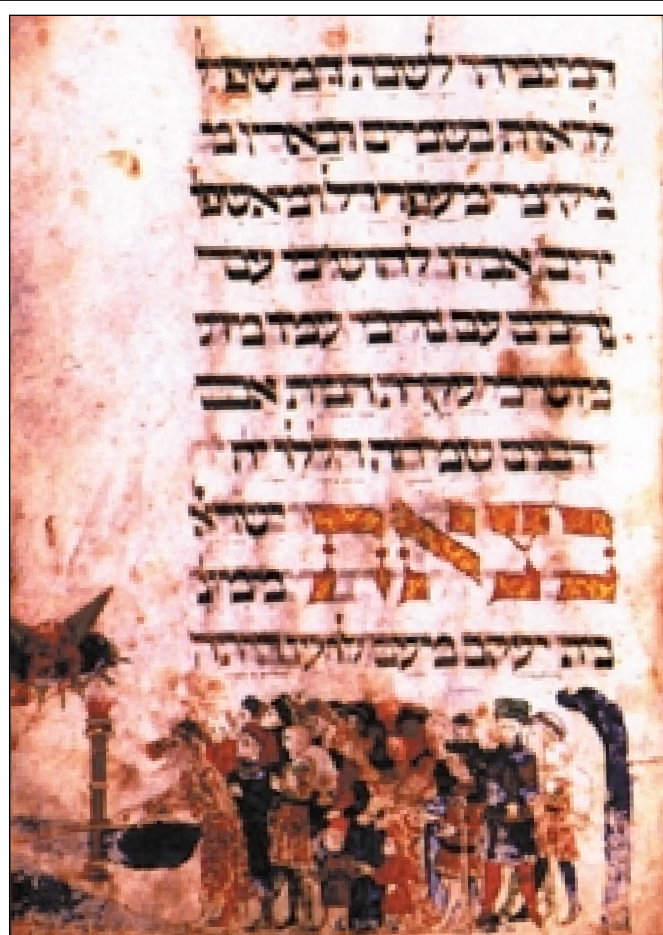 המגביהי לשבת המשפילי
לראות בשמים ובארץ מ
מקימי מעפר דל ומאשפ
ירים אביון להושיבי עם
נדיבים עם נדיבי עמו
מושיבי עקרת הבית אם
הבנים שמחה הללויה
בצאת ישרא
ממצ
בית יעקב מעם לועז היתה